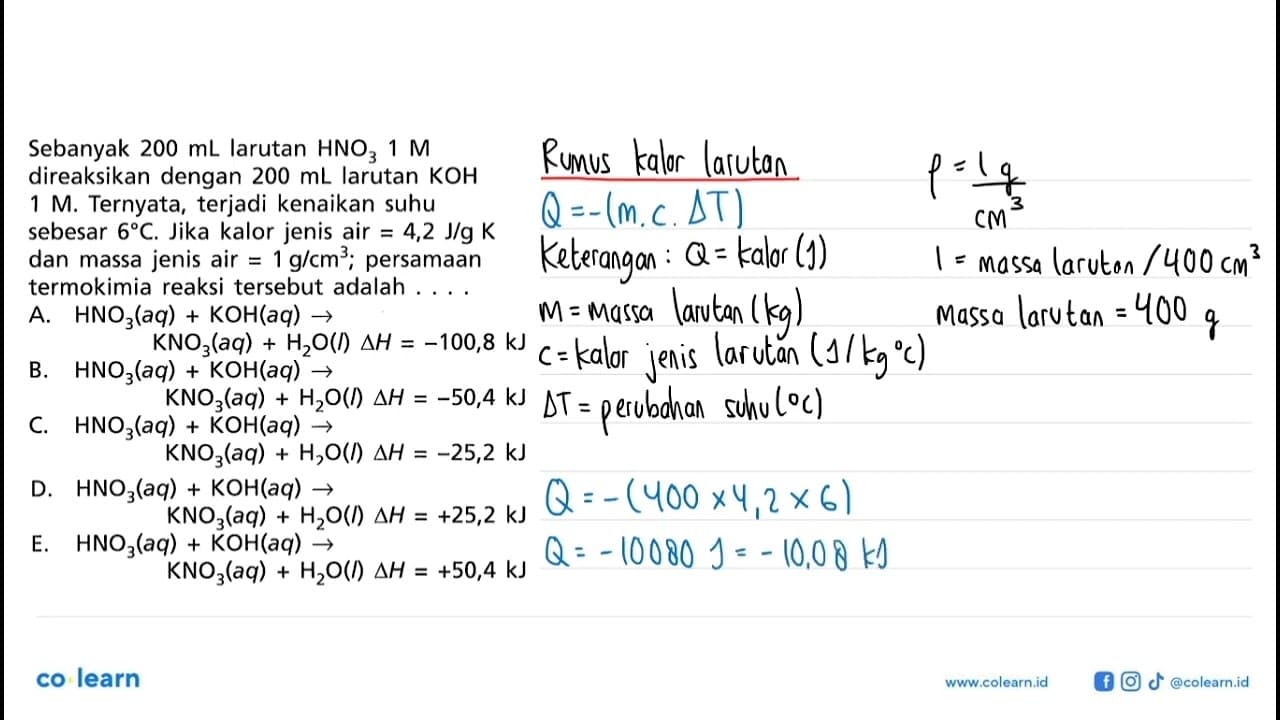 Sebanyak 200 mL larutan HNO₃ 1 M
direaksikan dengan 200 mL larutan KOH
1 M. Ternyata, terjadi kenaikan suhu
sebesar 6°C. Jika kalor jenis air = 4,2 J/g K
dan massa jenis air = 1 g/cm³; persamaan
termokimia reaksi tersebut adalah . . . .
A. HNO₃(aq) + KOH(aq) →
KNO₃(aq) + H₂O(l) ΔH = −100,8 kJ
B. HNO₃(aq) + KOH(aq) →
KNO₃(aq) + H₂O(l) ΔH = −50,4 kJ
C. HNO₃(aq) + KOH(aq) →
KNO₃(aq) + H₂O(l) ΔH = −25,2 kJ
D. HNO₃(aq) + KOH(aq) →
KNO₃(aq) + H₂O(l) ΔH = +25,2 kJ
E. HNO₃(aq) + KOH(aq) →
KNO₃(aq) + H₂O(l) ΔH = +50,4 kJ
Rumus kalor larutan
Q = -(m.c. ΔT)
Keterangan : Q = kalor (J)
M = massa larutan (kg)
C = kalor jenis larutan (J/kg°C)
ΔT = perubahan suhu (°C)
Q = -(400 x 4,2 x 6)
Q = -10080 J = -10,08 kJ
ρ = 1 g/cm³
1 = massa larutan / 400 cm³
Massa larutan = 400 g
co learn
www.colearn.id
@colearn.id